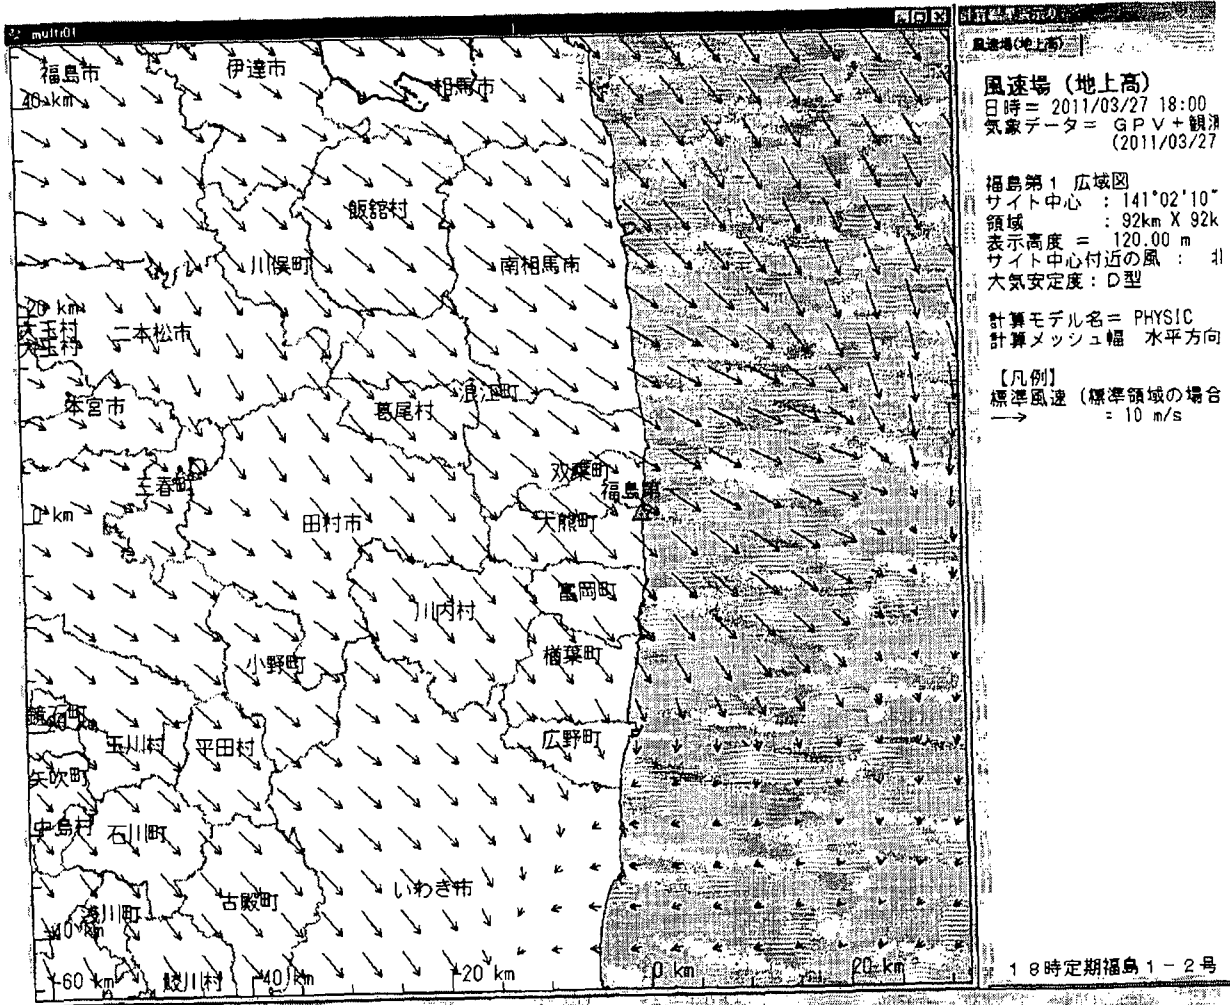 multi01
福島市
伊達市
相馬市
40 km
飯舘村
川俣町
南相馬市
20 km
大玉村
大玉村
二本松市
本宮市
葛尾村
浪江町
三春町
双葉町
福島第一
0 km
田村市
大熊町
富岡町
川内村
楢葉町
小野町
鏡石町
玉川村
平田村
広野町
矢吹町
中島村
石川町
いわき市
古殿町
浅川町
-40 km
-60 km
鮫川村
-40 km
-20 km
0 km
20 km
風速場(地上高)
風速場 (地上高)
日時= 2011/03/27 18:00
気象データ= GPV+観測
(2011/03/27
福島第1 広域図
サイト中心 : 141°02'10"
領域 : 92km X 92k
表示高度 = 120.00 m
サイト中心付近の風 : 北
大気安定度:D型
計算モデル名= PHYSIC
計算メッシュ幅 水平方向
【凡例】
標準風速 (標準領域の場合
→ = 10 m/s
18時定期福島1-2号